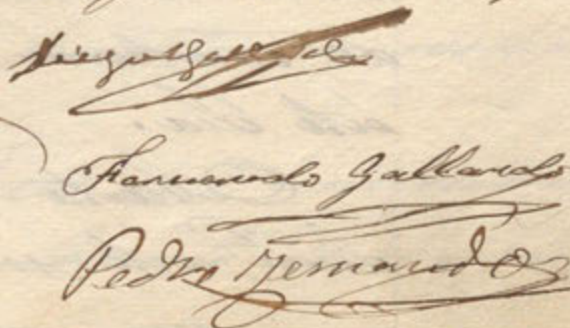 Diego Gallardo
Fernando Gallardo
Pedro Fernandez